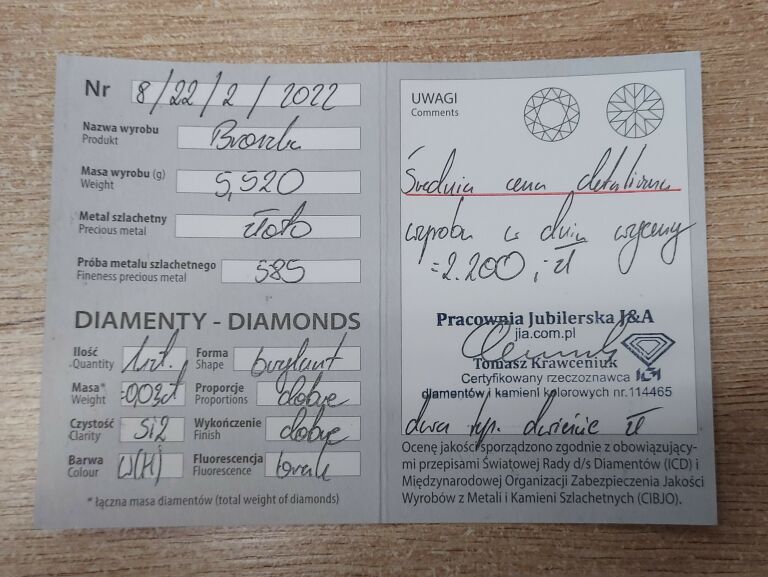 Nr 8/22/2/2022
Nazwa wyrobu Broszka
Produkt
Masa wyrobu (g) 5,520
Weight
Metal szlachetny złoto
Precious metal
Próba metalu szlachetnego 585
Fineness precious metal
DIAMENTY - DIAMONDS
Ilość 1szt. Forma brylant
Quantity Shape
Masa* =0,03ct Proporcje dobre
Weight Proportions
Czystość Si2 Wykończenie dobre
Clarity Finish
Barwa W(H) Fluorescencja brak
Colour Fluorescence
* łączna masa diamentów (total weight of diamonds)
UWAGI
Comments
Średnia cena detaliczna
wyrobu w dniu wyceny
=2.200,- zł
Pracownia Jubilerska J&A
jia.com.pl
Tomasz Krawceniuk
Certyfikowany rzeczoznawca
diamentów i kamieni kolorowych nr.114465
dwa tys. dwieście zł
Ocenę jakości sporządzono zgodnie z obowiązują-
mi przepisami Światowej Rady d/s Diamentów (ICD) i
Międzynarodowej Organizacji Zabezpieczenia Jakości
Wyrobów z Metali i Kamieni Szlachetnych (CIBJO).